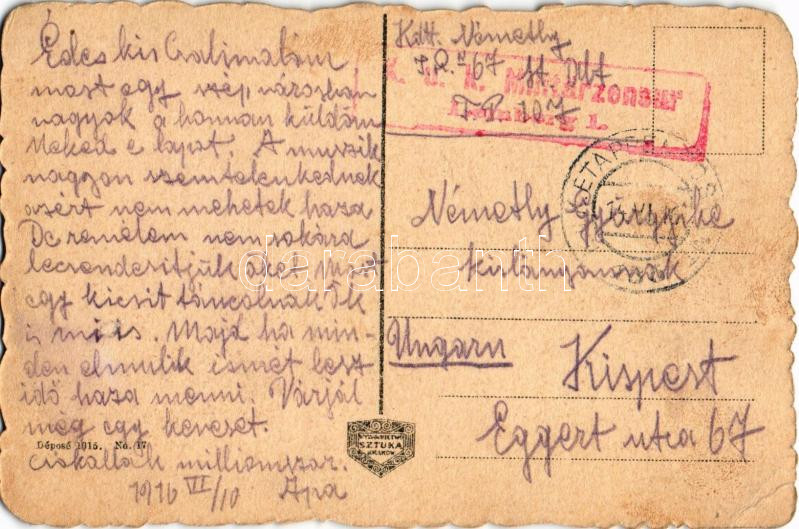 Édes kis Galimatám
most egy szép városban
vagyok a honnan küldöm
Neked e lapot. A muszik
nagyon szemtelenkednek
azért nem mehetek haza
De remélem nemsokára
lecsenderitjük őket. Még
egy kicsit táncolnak ők
is mi is. Majd ha min-
den elmulik ismet lesz
idő haza menni. Várjál
még egy keveset.
Csokollak milliomszor.
1916 VI/10 Apa
Déposé 1915. No. 17
WYDAWNICTWO
SZTUKA
KRAKÓW
Kdtt. Némethy
I.R. 67
FP 107
K. u. k. Militärzensur
1.
K.u.K. ETAPEN
Némethy Györgyike
Ungarn
Kispest
Eggert utca 67
darabanth